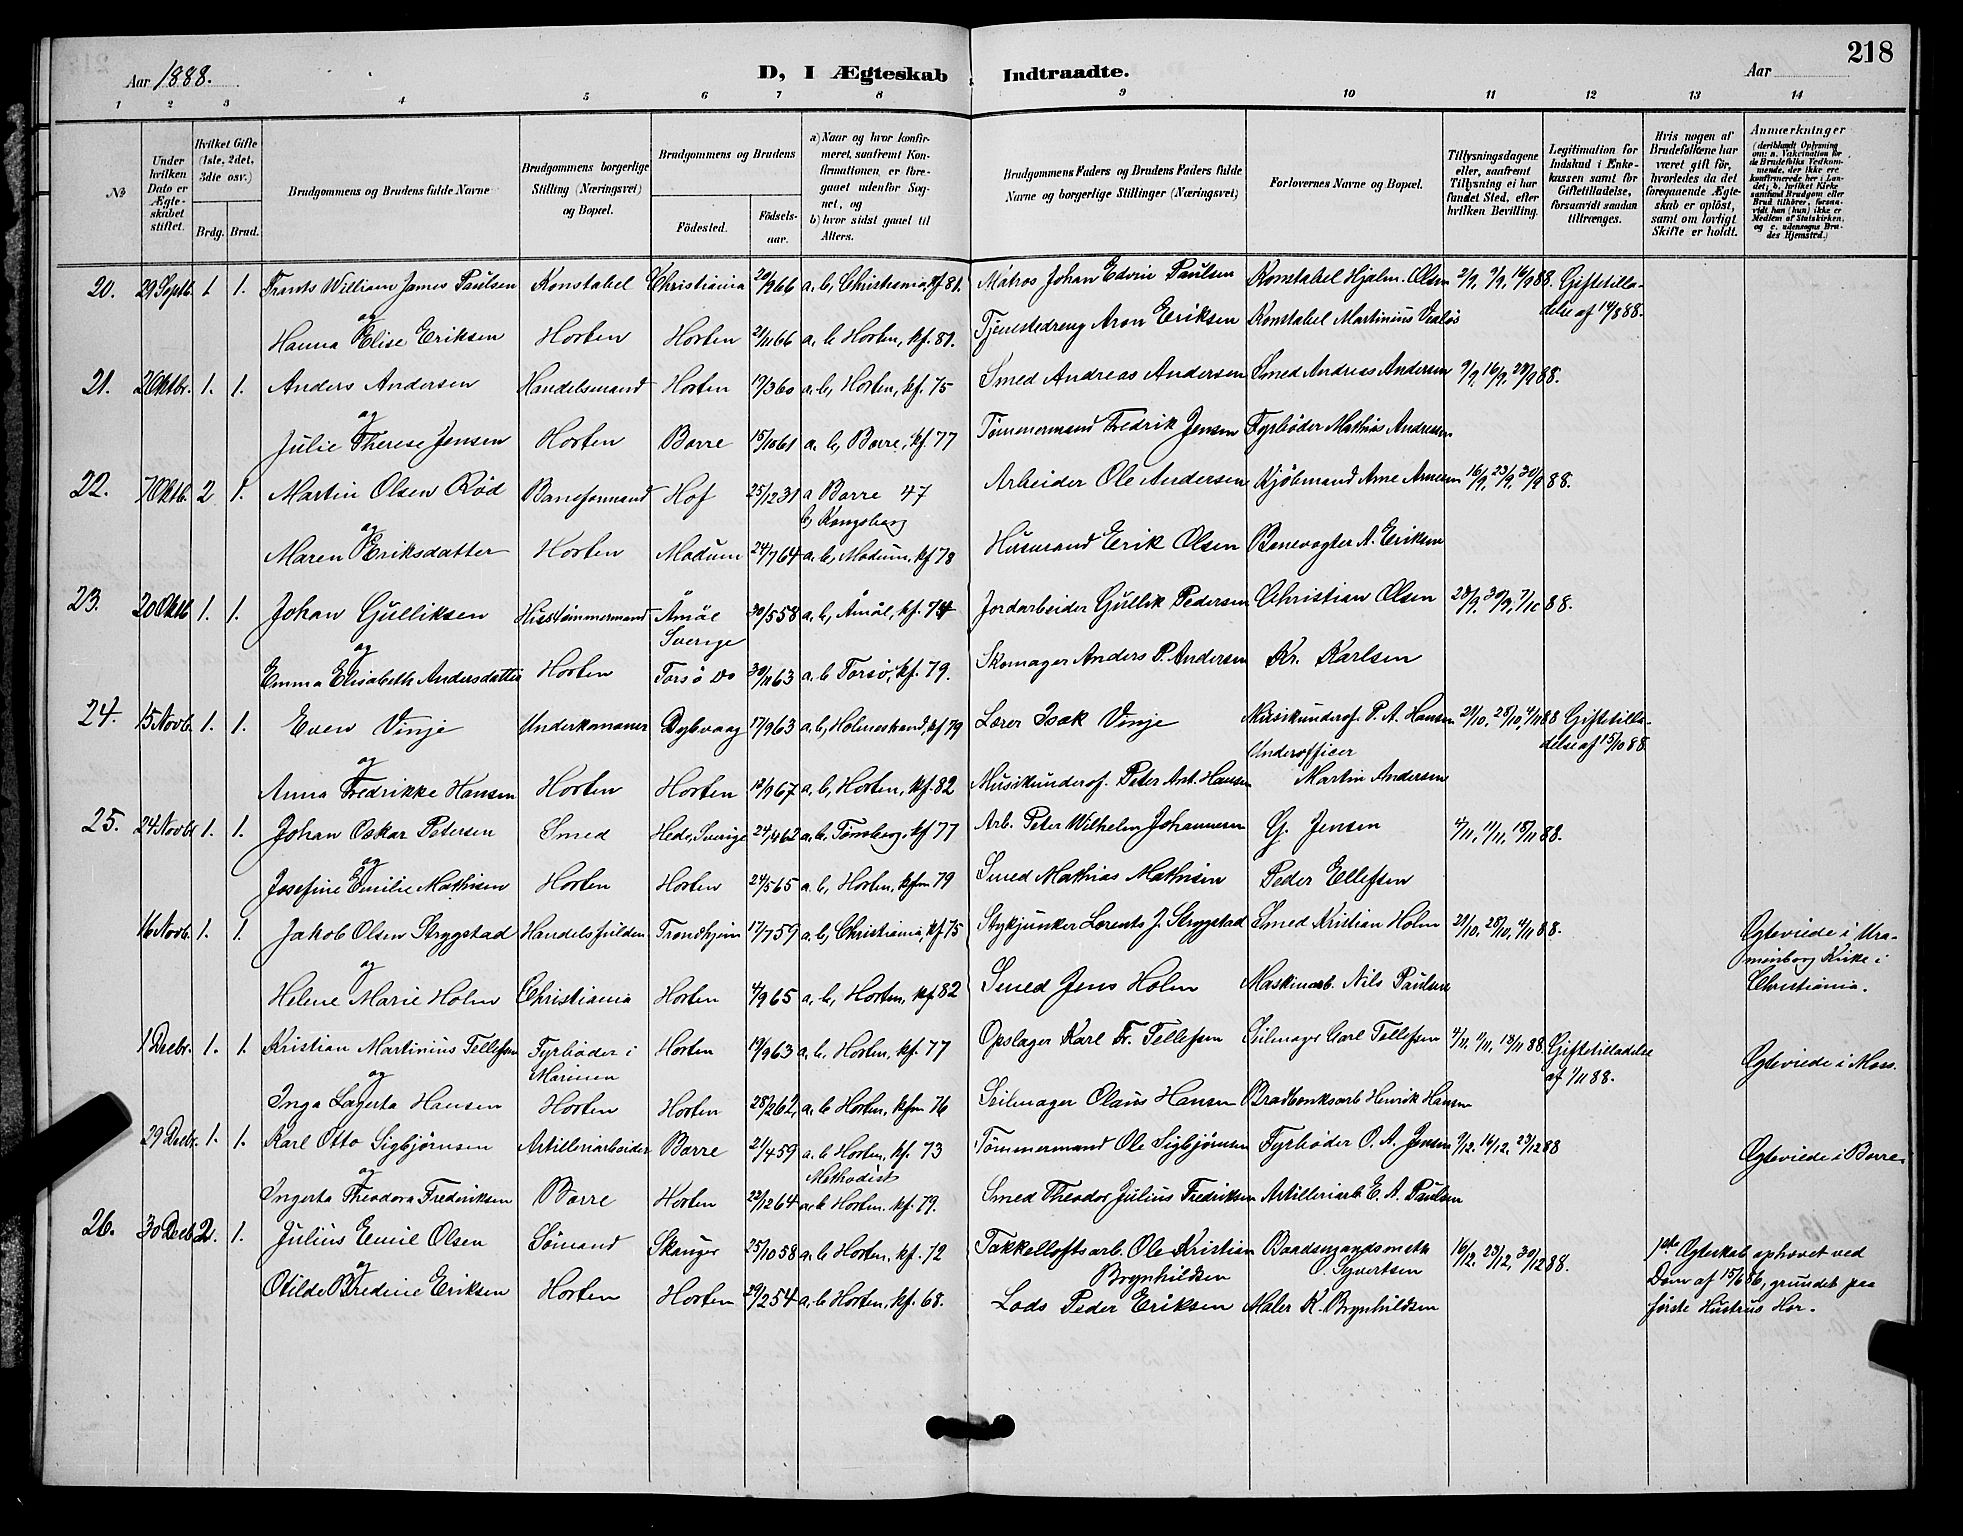 218
Aar 1888.
D, I Ægteskab Indtraadte.
Aar
1 2 3 4 5 6 7 8 9 10 11 12 13 14
No
Under hvilken Dato er Ægteskabet stiftet.
Hvilket Gifte (1ste, 2det, 3die osv.)
Brdg. Brud.
Brudgommens og Brudens fulde Navne
Brudgommens borgerlige Stilling (Næringsvei) og Bopæl.
Brudgommens og Brudens
Fødested. Fødselsaar.
a) Naar og hvor konfirmeret, saafremt Konfirmationen, er foregaaet udenfor Sognet, og
b) hvor sidst gaaet til Alters.
Brudgommens Faders og Brudens Faders fulde Navne og borgerlige Stillinger (Næringsvei)
Forlovernes Navne og Bopæl.
Tillysningsdagene eller, saafremt Tillysning ei har fundet Sted, efter hvilken Bevilling.
Legitimation for Indskud i Enkekassen samt for Giftetilladelse, forsaavidt saadan tiltrænges.
Hvis nogen af Brudefolkene har været gift før, hvorledes da det foregaaende Ægteskab er opløst, samt om lovligt Skifte er holdt.
Anmærkninger (deriblandt Oplysning om: a. Vakcination for de Brudefolks Vedkommende, der ikke ere konfirmerede her i Landet; b. hvilket Kirkesamfund Brudgom eller Brud tilhører, forsaavidt han (hun) ikke er Medlem af Statskirken, og c. udensogns Brudes Hjemsted.)
20. 29 Septb. 1 1. Frants William James Paulsen Konstabel Christiania 20/9 66 a. b, Christiania, kf 81. Matros Johan Edvin Paulsen Konstabel Hjalm. Olsen 2/9, 9/9, 16/9 88. Giftetilla-
og delse af 14/8 88.
Hanna Elise Eriksen Horten Horten 21/11 66 a. b Horten, kf. 81. Tjenestedreng Aron Eriksen Konstabel Martinius
21. 2 Oktbr. 1. 1. Anders Andersen Handelsmand Horten 17/3 60 a. b, Horten, kf. 75 Smed Andreas Andersen Smed Andreas Andersen 9/9, 16/9, 23/9 88.
og
Julie Therese Jensen Horten Borre 15/10 61 a. b, Borre, kf. 77 Tømmermand Fredrik Jensen Fyrbøder Mathias Andresen
22. 7 Oktb. 2 1. Martin Olsen Rød Baneformand Hof 25/12 31 a Borre 47 Arbeider Ole Andersen Kjøbmand Arne Arnesen 16/9, 23/9, 30/9 88.
og b, Kongsberg
Maren Eriksdatter Horten Modum 24/7 64 a. b, Modum, kf 78 Husmand Erik Olsen Banevogter A. Eriksen
23. 20 Oktb 1. 1. Johan Gulliksen Hustømmermand Åmål 30/5 58 a. b, Åmål, kf. 74 Jordarbeider Gullik Pedersen Christian Olsen 23/9, 30/9, 7/10 88.
og Sverige
Emma Elisabeth Andersdatter Horten Torsö do 30/11 63 a. b Torsö, kf. 79. Skomager Anders P. Andersen Kr. Karlsen
24. 15 Novb. 1. 1. Even Vinje Underkanoner Dybvaag 17/9 63 a. b, Holmestrand, kf 79 Lærer Isak Vinje Musikunderof. P. A. Hansen 21/10, 28/10, 4/11 88 Giftetilla-
og Underofficer delse af 15/10 88.
Anna Fredrikke Hansen Horten Horten 12/9 67 a. b, Horten, kf. 82 Musikunderof. Peter Ant. Hansen Martin Andersen
25. 24 Novb 1. 1. Johan Oskar Petersen Smed Hede, Sverige 24/4 62 a. b. Tønsberg, kf 77 Arb. Peter Wilhelm Johannesen G. Jensen 4/11, 11/11, 18/11 88.
og
Josefine Emilie Mathisen Horten Horten 24/5 65 a. b, Horten, kfm 79 Smed Mathias Mathisen Peder Ellefsen
16 Novb. 1. 1. Jakob Olsen Strygstad Handelsfuldm. Trondhjem 17/7 59 a. b, Christiania, kf 75 Stykjunker Lorents J. Strygstad Smed Kristian Holm 21/10, 28/10, 4/11 88. Egteviede i Ura-
og nienborg Kirke i
Helene Marie Holm Christiania Horten 4/9 65 a. b, Horten, kf 82 Smed Jens Holm Maskinarb. Nils Paulsen Christiania.
1 Decbr. 1. 1. Kristian Martinius Tellefsen Fyrbøder i Horten 19/9 63 a. b. Horten, kf. 77 Opslager Karl Fr. Tellefsen Seilmager Carl Tellefsen 4/11, 11/11, 18/11 88. Giftetilladelse Egteviede i Moss.
og Marinen af 1/11 88.
Inga Lagerta Hansen Horten Horten 28/2 62, a. b Horten, kfm 76 Seilmager Olaus Hansen Bradbænksarb Henrik Hansen
29 Decbr. 1. 1. Karl Otto Sigbjørnsen Artilleriarbeider Borre 21/4 59 a. b Horten, kf. 73 Tømmermand Ole Sigbjørnsen Fyrbøder O. A. Jensen 9/12, 16/12, 23/12 88 Egteviede i Borre.
og Methodist
Ingerta Theodora Fredriksen Borre Horten 22/12 64 a. b Horten, kf. 79. Smed Theodor Julius Fredriksen Artilleriarb. E. A. Paulsen
26. 30 Decb 2. 1. Julius Emil Olsen Sømand Skauger 25/10 58 a. b Horten, kf. 72 Takkelloftsarb. Ole Kristian Baadsmandsmath 16/12, 23/12, 30/12 88. 1ste Egteskab ophævet ved
og Brynhildsen O. Syvertsen Dom af 15/6 86, grundet paa
Otilde Bredine Eriksen Horten Horten 29/2 54 a. b Horten, kf. 68. Lods Peder Eriksen Maler K. Brynhildsen første Hustrus Hor.